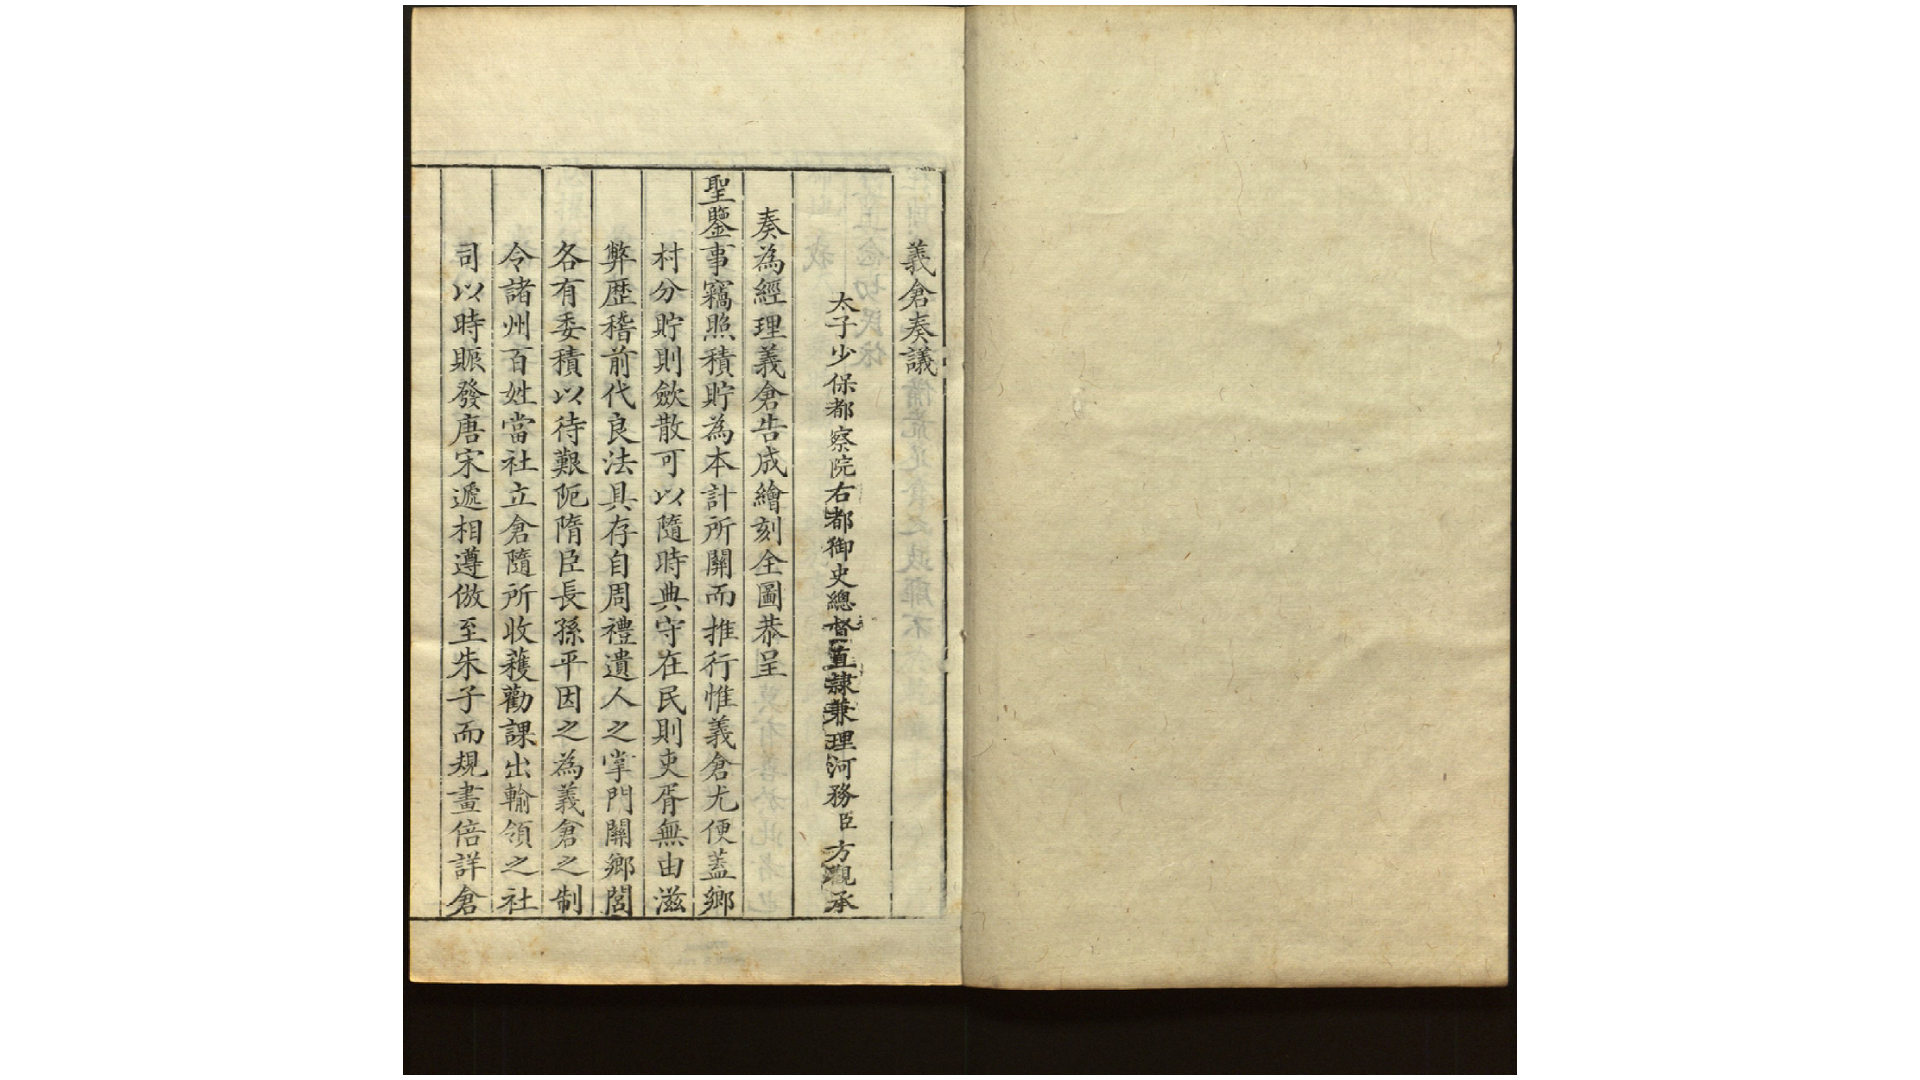 義倉奏議
太子少保都察院右都御史總督直隷兼理河務臣方觀承
奏為經理義倉告成繪刻全圖恭呈
聖鑒事竊照積貯為本計所關而推行惟義倉尤便蓋鄉
村分貯則歛散可以隨時典守在民則吏胥無由滋
弊歷稽前代良法具存自周禮遺人之掌門關鄉閭
各有委積以待艱阨隋臣長孫平因之為義倉之制
令諸州百姓當社立倉隨所收穫勸課出輸領之社
司以時賑發唐宋遞相遵倣至朱子而規畫倍詳倉